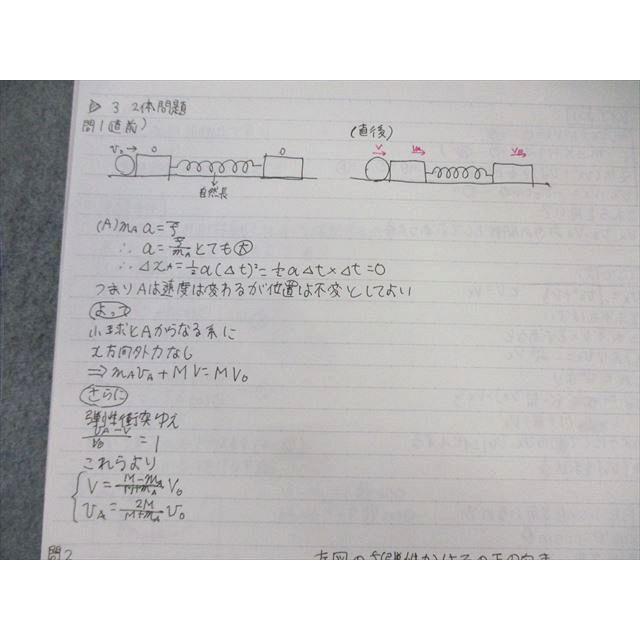 ▷ 3 2体問題
問1(直前)
(直後)
V₀→ 0 0
V VA VB
自然長
(A) mA a = f
∴ a = f/mA とても大
∴ Δx_A = 1/2 a(Δt)² = 1/2 a Δt × Δt = 0
つまりAは速度は変わるが位置は不変としてよい
よって
小球とAからなる系に
x方向外力なし
⇒ mAvA + MV = MV₀
さらに
弾性衝突ゆえ
vA−V/V₀ = 1
これらより
V = M−mA/M+mA V₀
vA = 2M/M+mA v₀
問2